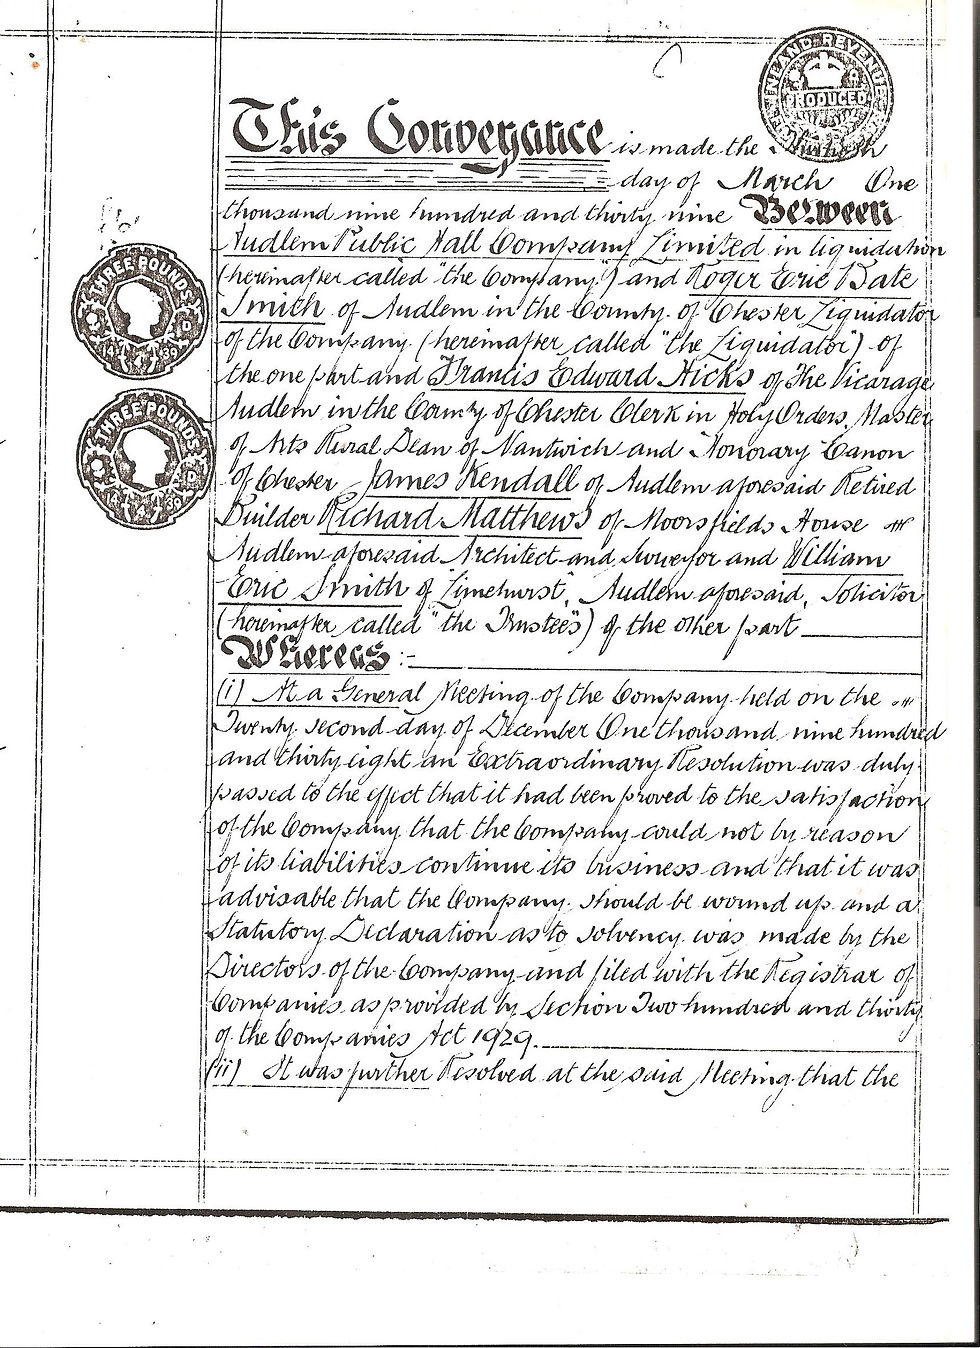 INLAND REVENUE
PRODUCED
This Conveyance is made the
day of March One
thousand nine hundred and thirty nine Between
Audlem Public Hall Company Limited in liquidation
(hereinafter called "the Company") and Roger Eric Bate
Smith of Audlem in the County of Chester Liquidator
of the Company (hereinafter called "the Liquidator") of
the one part and Francis Edward Hicks of The Vicarage
Audlem in the County of Chester Clerk in Holy Orders, Master
of Arts Rural Dean of Nantwich and Honorary Canon
of Chester James Kendall of Audlem aforesaid Retired
Builder Richard Matthews of Moorsfields House
Audlem aforesaid Architect and Surveyor and William
Eric Smith of "Limehurst", Audlem aforesaid, Solicitor
(hereinafter called "the Trustees") of the other part
Whereas :-
(i) At a General Meeting of the Company held on the
Twenty second day of December One thousand nine hundred
and thirty eight an Extraordinary Resolution was duly
passed to the effect that it had been proved to the satisfaction
of the Company that the Company could not by reason
of its liabilities continue its business and that it was
advisable that the Company should be wound up and a
Statutory Declaration as to solvency was made by the
Directors of the Company and filed with the Registrar of
Companies as provided by Section Two hundred and thirty
of the Companies Act 1929.
(ii) It was further Resolved at the said Meeting that the
THREE POUNDS
14 . 7 39
THREE POUNDS
14 . 7 39